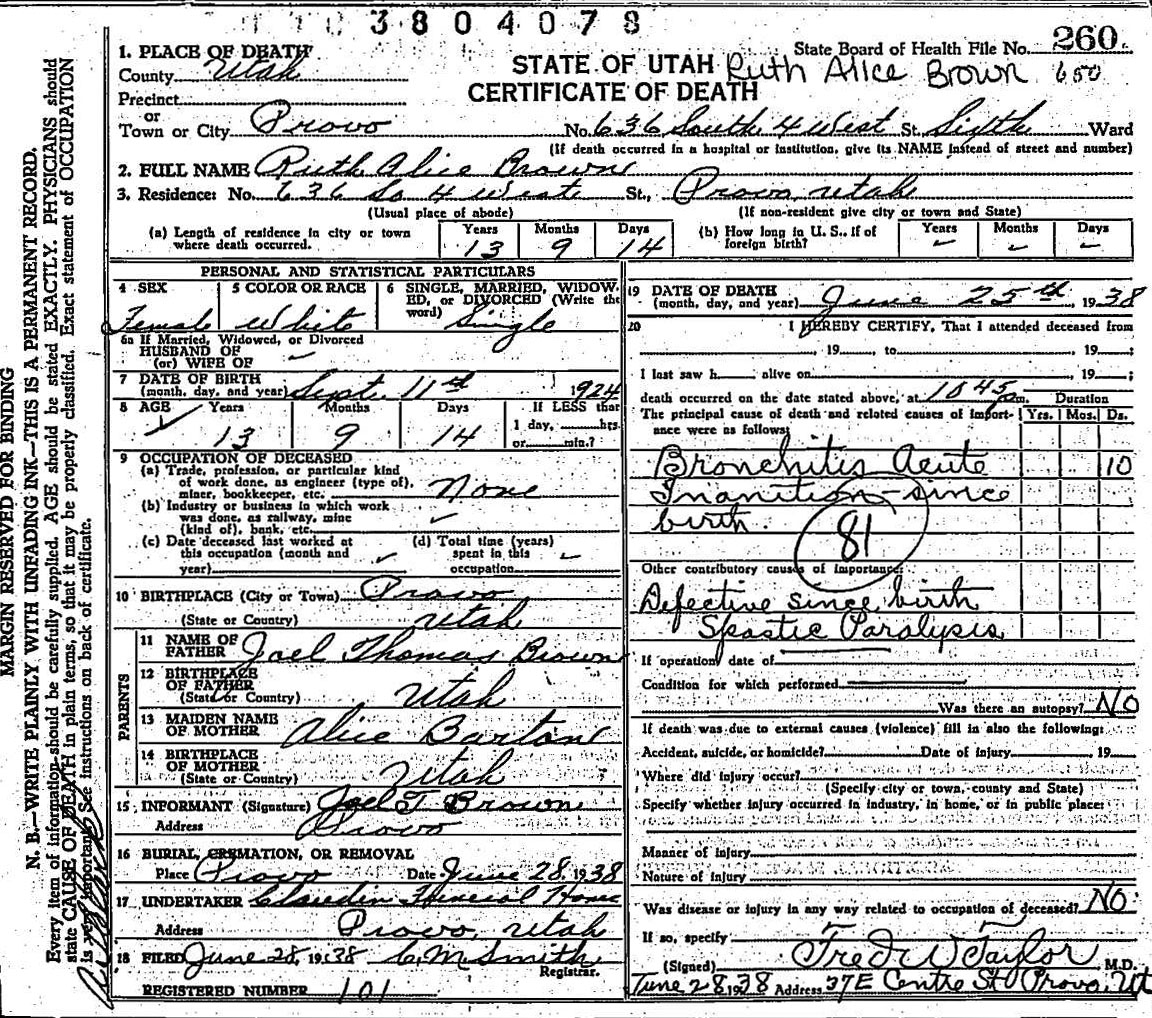 3804078
State Board of Health File No. 260.
STATE OF UTAH Ruth Alice Brown 650
CERTIFICATE OF DEATH
1. PLACE OF DEATH
County Utah
Precinct
or
Town or City Provo No. 636 South 4 West St. Sixth Ward
(If death occurred in a hospital or institution, give its NAME instead of street and number)
2. FULL NAME Ruth Alice Brown
3. Residence: No. 636 So 4 West St., Provo, Utah
(Usual place of abode) (If non-resident give city or town and State)
(a) Length of residence in city or town where death occurred. Years 13 Months 9 Days 14
(b) How long in U. S., if of foreign birth? Years - Months - Days -
PERSONAL AND STATISTICAL PARTICULARS
4 SEX Female
5 COLOR OR RACE White
6 SINGLE, MARRIED, WIDOWED, or DIVORCED (Write the word) Single
6a If Married, Widowed, or Divorced
HUSBAND OF
(or) WIFE OF -
7 DATE OF BIRTH
(month, day, and year) Sept. 11th 1924
8 AGE Years 13 Months 9 Days 14
If LESS than 1 day, hrs.
or min.?
9 OCCUPATION OF DECEASED
(a) Trade, profession, or particular kind
of work done, as engineer (type of),
miner, bookkeeper, etc. None
(b) Industry or business in which work
was done, as railway, mine
(kind of), bank, etc.
(c) Date deceased last worked at
this occupation (month and
year)
(d) Total time (years)
spent in this
occupation
10 BIRTHPLACE (City or Town) Provo
(State or Country) Utah
PARENTS
11 NAME OF FATHER Joel Thomas Brown
12 BIRTHPLACE OF FATHER
(State or Country) Utah
13 MAIDEN NAME OF MOTHER Alice Barton
14 BIRTHPLACE OF MOTHER
(State or Country) Utah
15 INFORMANT (Signature) Joel T Brown
Address Provo
16 BURIAL, CREMATION, OR REMOVAL
Place Provo Date June 28, 1938
17 UNDERTAKER Claudin Funeral Home
Address Provo, Utah
18 FILED June 28, 1938 C M Smith
Registrar.
REGISTERED NUMBER 101
19 DATE OF DEATH
(month, day, and year) June 25th 1938
20 I HEREBY CERTIFY, That I attended deceased from
, 19 , to , 19 ;
I last saw h alive on , 19 ;
death occurred on the date stated above, at 10 45 m. Duration
The principal cause of death and related causes of importance were as follows: Yrs. Mos. Ds.
Bronchitis Acute 10
Inanition - since
birth.
81
Other contributory causes of importance:
Defective since birth
Spastic Paralysis
If operation, date of
Condition for which performed
Was there an autopsy? NO
If death was due to external causes (violence) fill in also the following:
Accident, suicide, or homicide? Date of injury 19
Where did injury occur?
(Specify city or town, county and State)
Specify whether injury occurred in industry, in home, or in public place:
Manner of injury
Nature of injury
Was disease or injury in any way related to occupation of deceased? NO.
If so, specify
(Signed) Fred W Taylor M.D.
June 28 1938 Address 37 E Centre St Provo, Ut
MARGIN RESERVED FOR BINDING
N. B.—WRITE PLAINLY WITH UNFADING INK—THIS IS A PERMANENT RECORD.
Every item of information should be carefully supplied. AGE should be stated EXACTLY. PHYSICIANS should
state CAUSE OF DEATH in plain terms, so that it may be properly classified. Exact statement of OCCUPATION
is very important. See instructions on back of certificate.